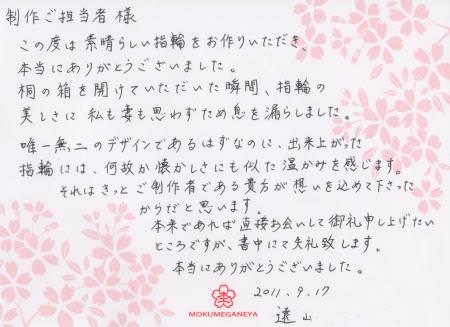 制作ご担当者様
この度は素晴らしい指輪をお作りいただき、
本当にありがとうございました。
桐の箱を開けていただいた瞬間、指輪の
美しさに私も妻も思わずため息を漏らしました。
唯一無二のデザインであるはずなのに、出来上がった
指輪には、何故か懐かしさにも似た温かみを感じます。
それはきっとご制作者である貴方が想いを込めて下さった
からだと思います。
本来であれば直接お会いして御礼申し上げたい
ところですが、書中にて失礼致します。
本当にありがとうございました。
2011.9.17
遠山
MOKUMEGANEYA